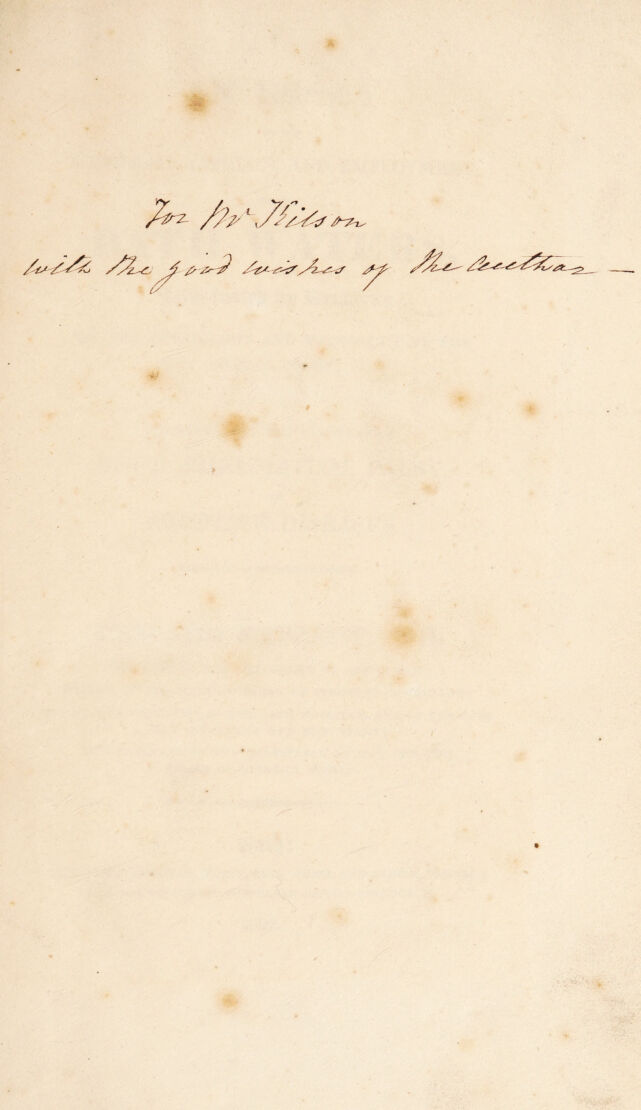 For Mr Kitson
with the good wishes of the Author —